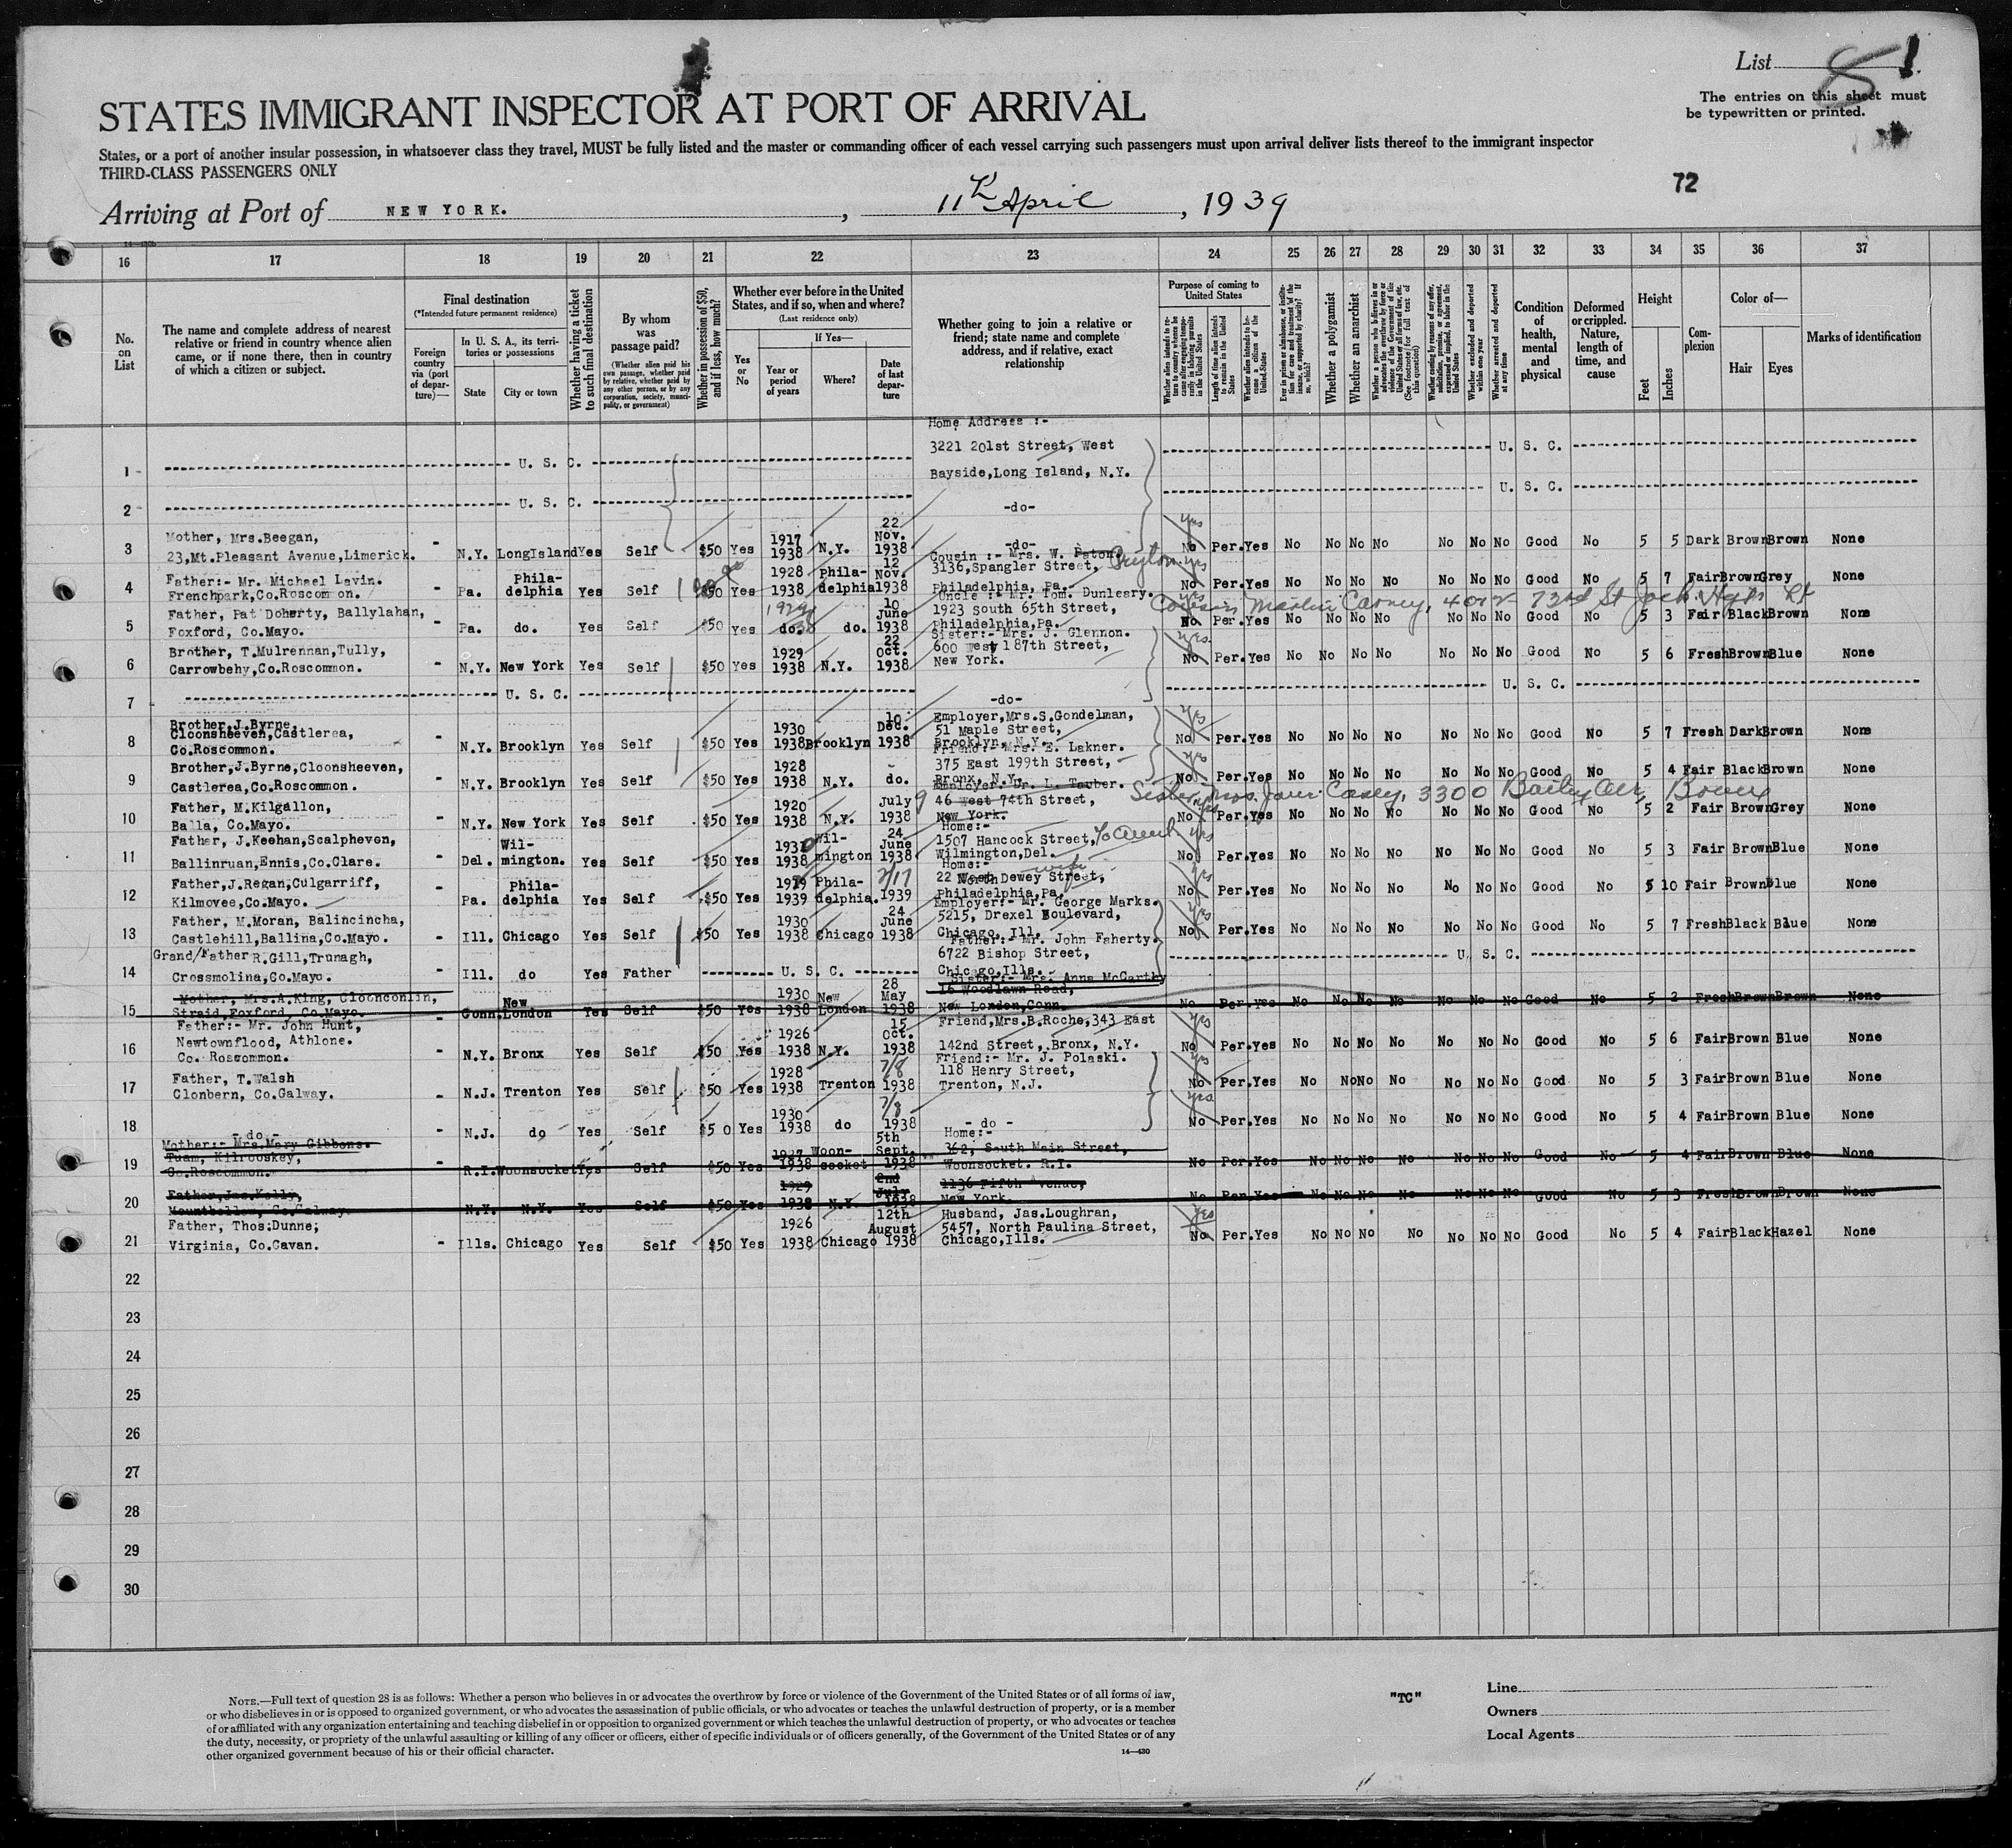 List 8 1.
The entries on this sheet must
be typewritten or printed.
STATES IMMIGRANT INSPECTOR AT PORT OF ARRIVAL
States, or a port of another insular possession, in whatsoever class they travel, MUST be fully listed and the master or commanding officer of each vessel carrying such passengers must upon arrival deliver lists thereof to the immigrant inspector
THIRD-CLASS PASSENGERS ONLY
72
Arriving at Port of NEW YORK. , 11th April , 1939
16 17 18 19 20 21 22 23 24 25 26 27 28 29 30 31 32 33 34 35 36 37
No. on List
The name and complete address of nearest relative or friend in country whence alien came, or if none there, then in country of which a citizen or subject.
Final destination
(*Intended future permanent residence)
Foreign country via (port of departure)—
In U. S. A., its territories or possessions
State
City or town
Whether having a ticket to such final destination
By whom was passage paid?
(Whether alien paid his own passage, whether paid by relative, whether paid by any other person, or by any corporation, society, municipality, or government)
Whether in possession of $50, and if less, how much?
Whether ever before in the United States, and if so, when and where?
(Last residence only)
Yes or No
If Yes—
Year or period of years
Where?
Date of last departure
Whether going to join a relative or friend; state name and complete address, and if relative, exact relationship
Purpose of coming to United States
Length of time alien intends to remain in the United States
Whether alien intends to become a citizen of the United States
Whether a polygamist
Whether an anarchist
Whether excluded and deported within one year
Whether arrested and deported at any time
Condition of health, mental and physical
Deformed or crippled. Nature, length of time, and cause
Height
Feet
Inches
Complexion
Color of—
Hair
Eyes
Marks of identification
Home Address :-
3221 201st Street, West
1 U. S. C. Bayside,Long Island, N.Y. U. S. C.
2 U. S. C. -do- U. S. C.
Mother, Mrs.Beegan, 1917 22 Nov. Yes
3 23,Mt.Pleasant Avenue,Limerick. - N.Y. LongIsland Yes Self $50 Yes 1938 N.Y. 1938 -do- No Per. Yes No No No No No No No Good No 5 5 Dark Brown Brown None
Cousin :- Mrs. W. Paton.
Father:- Mr. Michael Lavin. Phila- 1928 Phila- 12 Nov. 3136,Spangler Street, Yes
4 Frenchpark,Co.Roscommon. - Pa. delphia Yes Self $50 Yes 1938 delphia 1938 Philadelphia, Pa. No Per. Yes No No No No No No No Good No 5 7 Fair Brown Grey None
Uncle :- Mr. Tom. Dunleary. Cousin Martin Carney, 40 72nd St Jack. Hgts
Father, Pat Doherty, Ballylahan, 1929 10 June 1923 South 65th Street,
5 Foxford, Co.Mayo. Pa. do. Yes Self $50 Yes do. do. 1938 Philadelphia,Pa. No Per. Yes No No No No No No No Good No 5 3 Fair Black Brown None
Sister:- Mrs. J. Glennon.
Brother, T.Mulrennan,Tully, 1929 22 Oct. 600 West 187th Street, Yes
6 Carrowbehy,Co.Roscommon. - N.Y. New York Yes Self $50 Yes 1938 N.Y. 1938 New York. No Per. Yes No No No No No No No Good No 5 6 Fresh Brown Blue None
7 U. S. C. -do- U. S. C.
Brother,J.Byrne, 10 Employer,Mrs.S.Gondelman, Yes
Cloonsheeven,Castlerea, 1930 Dec. 51 Maple Street,
8 Co.Roscommon. - N.Y. Brooklyn Yes Self $50 Yes 1938 Brooklyn 1938 Brooklyn,N.Y. No Per. Yes No No No No No No No Good No 5 7 Fresh Dark Brown None
Friend:- Mrs. E. Lakner.
Brother,J.Byrne,Cloonsheeven, 1928 - 375 East 199th Street, Yes
9 Castlerea,Co.Roscommon. - N.Y. Brooklyn Yes Self $50 Yes 1938 N.Y. do. Bronx, N.Y. No Per. Yes No No No No No No No Good No 5 4 Fair Black Brown None
Employer. Dr. L. Tauber. Sister Mrs. Casey, 3300 Bailey Ave, Bronx
Father, M.Kilgallon, 1920 July 9 46 West 74th Street,
10 Balla, Co.Mayo. - N.Y. New York Yes Self $50 Yes 1938 N.Y. 1938 New York. No Per. Yes No No No No No No No Good No 5 2 Fair Brown Grey None
Home:-
Father, J.Keehan,Scalpheven, Wil- 1930 Wil- 24 June 1507 Hancock Street, To Aunt Yes
11 Ballinruan,Ennis,Co.Clare. - Del. mington. Yes Self $50 Yes 1938 mington 1938 Wilmington,Del. No Per. Yes No No No No No No No Good No 5 3 Fair Brown Blue None
Home:- wife
Father,J.Regan,Culgarriff, Phila- Phila- 22 North Dewey Street, Yes
12 Kilmovee,Co.Mayo. - Pa. delphia Yes Self $50 Yes 1939 delphia. 1939 Philadelphia,Pa. No Per. Yes No No No No No No No Good No 5 10 Fair Brown Blue None
Employer:- Mr. George Marks.
Father, M.Moran, Balincincha, 1930 24 June 5215, Drexel Boulevard, Yes
13 Castlehill,Ballina,Co.Mayo. - Ill. Chicago Yes Self $50 Yes 1938 Chicago 1938 Chicago, Ill. No Per. Yes No No No No No No No Good No 5 7 Fresh Black Blue None
Father:- Mr. John Faherty.
Grand/Father R.Gill,Trunagh, 6722 Bishop Street, U. S. C.
14 Crossmolina,Co.Mayo. - Ill. do Yes Father U. S. C. Chicago,Ills.
Sister:- Mrs. Anna McCarthy
Mother, Mrs.A.King, Cloonconlin, New 1930 New 28 May 16 Woodlawn Road,
15 Straid,Foxford, Co.Mayo. - Conn. London Yes Self $50 Yes 1938 London 1938 New London,Conn. No Per. Yes No No No No No No No Good No 5 2 Fresh Brown Brown None
Father:- Mr. John Hunt, 15 Friend,Mrs.B.Roche,343 East Yes
Newtownflood, Athlone. 1926 Oct.
16 Co. Roscommon. - N.Y. Bronx Yes Self $50 Yes 1938 N.Y. 1938 142nd Street, Bronx, N.Y. No Per. Yes No No No No No No No Good No 5 6 Fair Brown Blue None
Friend:- Mr. J. Polaski. Yes
Father, T.Walsh 1928 7/8 118 Henry Street,
17 Clonbern, Co.Galway. - N.J. Trenton Yes Self $50 Yes 1938 Trenton 1938 Trenton, N.J. No Per. Yes No No No No No No No Good No 5 3 Fair Brown Blue None
1930 7/8 Yes
18 - do - - N.J. do Yes Self $50 Yes 1938 do 1938 - do - No Per. Yes No No No No No No No Good No 5 4 Fair Brown Blue None
Mother:- Mrs.Mary Gibbons. 5th Home:-
Tuam, Kilrooskey, 1927 Woon- Sept. 362, South Main Street,
19 Co.Roscommon. - R.I. Woonsocket Yes Self $50 Yes 1938 socket 1938 Woonsocket. R.I. No Per. Yes No No No No No No No Good No 5 4 Fair Brown Blue None
Father,Jas.Kelly, 1929 2nd July 1136 Fifth Avenue,
20 Mountbellew, Co.Galway. N.Y. N.Y. Yes Self $50 Yes 1938 N.Y. 1938 New York. No Per. Yes No No No No No No No Good No 5 3 Fresh Brown Brown None
12th Husband, Jas.Loughran, Yes
Father, Thos:Dunne; 1926 August 5457, North Paulina Street,
21 Virginia, Co.Cavan. - Ills. Chicago Yes Self $50 Yes 1938 Chicago 1938 Chicago,Ills. No Per. Yes No No No No No No No Good No 5 4 Fair Black Hazel None
22
23
24
25
26
27
28
29
30
NOTE.—Full text of question 28 is as follows: Whether a person who believes in or advocates the overthrow by force or violence of the Government of the United States or of all forms of law,
or who disbelieves in or is opposed to organized government, or who advocates the assassination of public officials, or who advocates or teaches the unlawful destruction of property, or is a member
of or affiliated with any organization entertaining and teaching disbelief in or opposition to organized government or which teaches the unlawful destruction of property, or who advocates or teaches
the duty, necessity, or propriety of the unlawful assaulting or killing of any officer or officers, either of specific individuals or of officers generally, of the Government of the United States or of any
other organized government because of his or their official character.
14—430
"TC"
Line
Owners
Local Agents